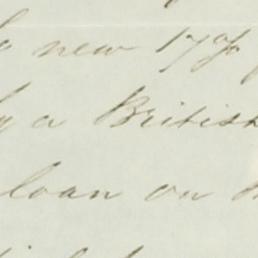 new 17%
a British
loan on